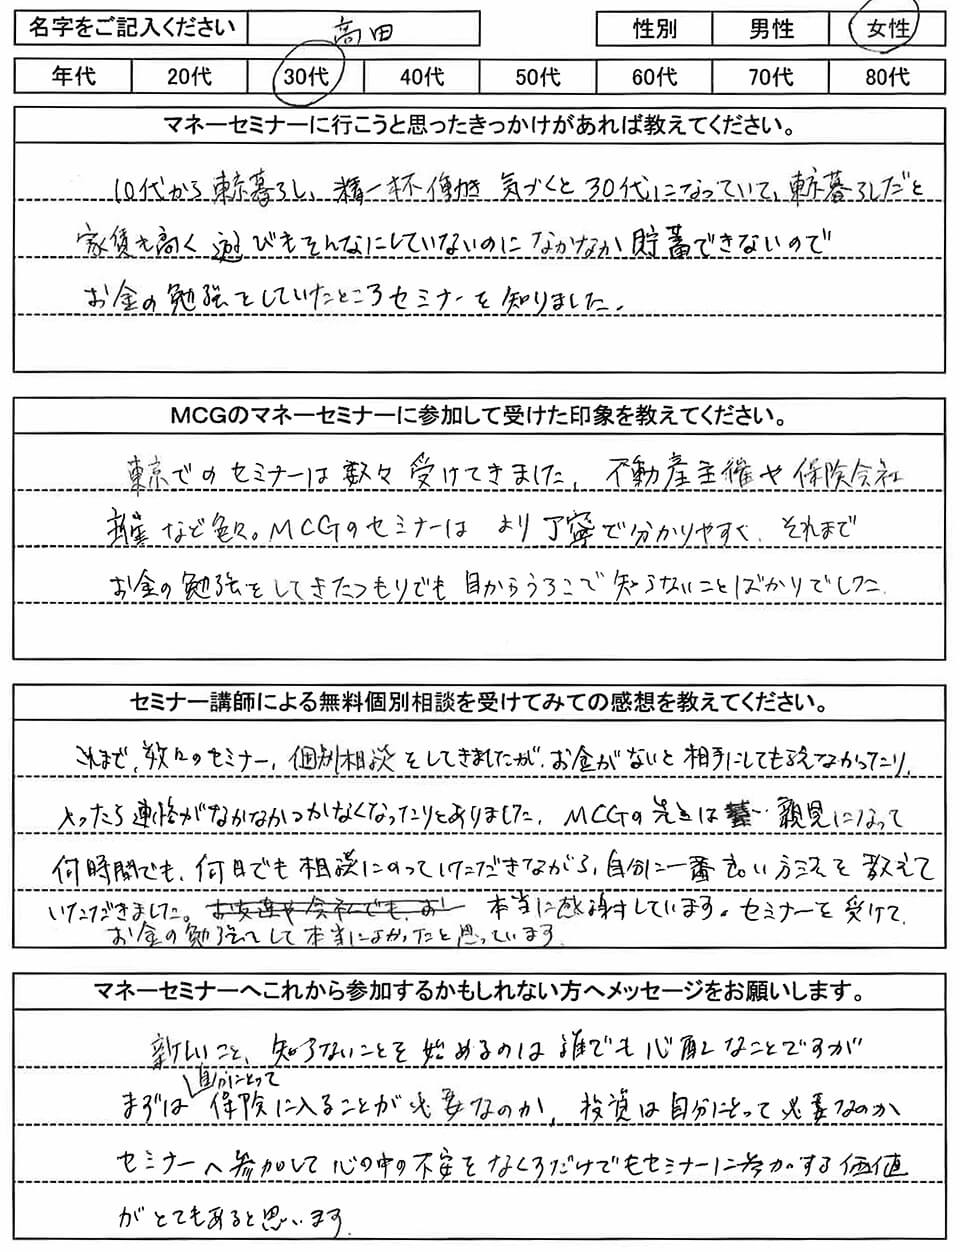 名字をご記入ください 高田 性別 男性 女性
年代 20代 30代 40代 50代 60代 70代 80代
マネーセミナーに行こうと思ったきっかけがあれば教えてください。
10代から東京暮らし、精一杯働き 気づくと30代になっていて、東京暮らしだと
家賃も高く 遊びもそんなにしていないのに なかなか 貯蓄できないので
お金の勉強をしていたところセミナーを知りました。
MCGのマネーセミナーに参加して受けた印象を教えてください。
東京でのセミナーは数々受けてきました、不動産主催や保険会社
主催など色々。MCGのセミナーは より丁寧で分かりやすく、それまで
お金の勉強をしてきたつもりでも 目からうろこで 知らないことばかりでした。
セミナー講師による無料個別相談を受けてみての感想を教えてください。
これまで、数々のセミナー、個別相談をしてきましたが、お金がないと相手にしてもらえなかったり、
いったら連絡がなかなかつかなくなったりとありました、MCGの先生は 親見になって
何時間でも、何日でも相談にのっていただきながら、自分に一番良い方法を教えて
いただきました。本当に感謝しています。セミナーを受けて、
お金の勉強をして本当によかったと思っています。
マネーセミナーへこれから参加するかもしれない方へメッセージをお願いします。
新しいこと、知らないことを始めるのは誰でも心配なことですが
自分にとって
まずは 保険に入ることが必要なのか、投資は自分にとって必要なのか
セミナーへ参加して心の中の不安をなくすだけでもセミナーに参加する価値
がとてもあると思います。